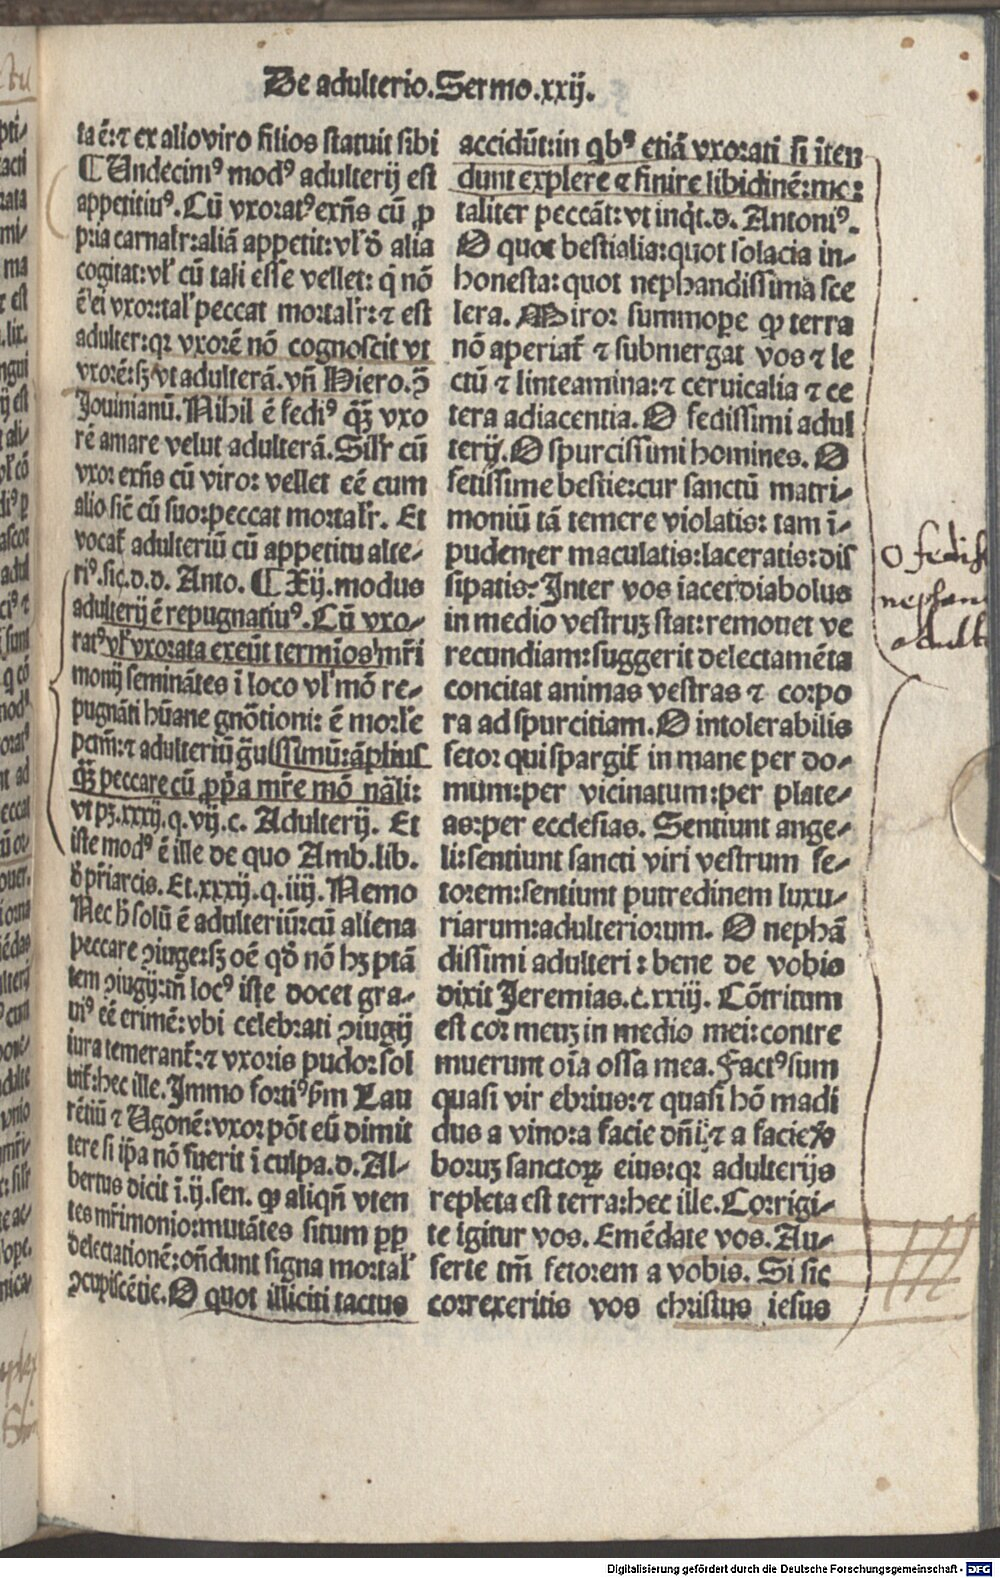 De adulterio. Sermo. xxij.
ta ē: ⁊ ex alio viro filios statuit sibi
¶ Undecimꝰ modꝰ adulterij est
appetitiuꝰ. Cū vxoratꝰ exñs cū ꝓ
pria carnalr̄: aliā appetit: vl' ď alia
cogitat: vl' cū tali esse vellet: q nō
ē ei vxor: tal' peccat mortalr̄: ⁊ est
adulter: qꝛ vxorē nō cognoscit vt
vxorē: sꝫ vt adulterā. vñ Hiero. ↄ̄
Jouinianū. Nihil ē fediꝰ qꝫ̄ vxo
rē amare velut adulterā. Silr̄ cū
vxor exñs cū viro: vellet eē cum
alio sic̄ cū suo: peccat mortalr̄. Et
vocat̄ adulteriū cū appetitu alte-
riꝰ. sic. d. d. Anto. ¶ Xij. modus
adulterij ē repugnatiuꝰ. Cū vxo-
ratꝰ vl' vxorata exeūt termīos mr̄i
monij seminātes ī loco vl' mō re-
pugnāti hūane gnōtioni: ē morl'e
pctm̄: ⁊ adulteriū ḡuissimū: āplius
qꝫ̄ peccare cū ꝓp̄a mr̄e mō nāli:
vt pꝫ. xxxij. q. vij. c. Adulterij. Et
iste modꝰ ē ille de quo Amb. lib.
ď pr̄iarcis. Et. xxxij. q. iiij. Nemo
Nec h̄ solū ē adulteriū: cū aliena
peccare ↄiuge: sꝫ oē qď nō hꝫ ptā
tem ↄiugij: tñ locꝰ iste docet gra-
uiꝰ eē crimē: vbi celebrati ↄiugij
iura temerant̄: ⁊ vxoris pudor sol
uit̄: hec ille. Immo fortiꝰ ẜm Lau
rētiū ⁊ Ugonē: vxor pōt eū dimit
tere si ip̄a nō fuerit ī culpa. d. Al-
bertus dicit ī. ij. sen. ꝙ aliqñ vten
tes mr̄imonio: mutātes situm ꝓp
delectationē: oñdunt signa mortal'
ↄcupiscētie. O quot illiciti tactus
accidūt: in qbꝰ etiā vxorati si īten
dunt explere ⁊ finire libidinē: mor
taliter peccāt: vt inqt. d. Antoniꝰ.
O quot bestialia: quot solacia in-
honesta: quot nephandissima sce
lera. Miror summope ꝙ terra
nō aperiat̄ ⁊ submergat vos ⁊ le
ctū ⁊ linteamina: ⁊ ceruicalia ⁊ ce
tera adiacentia. O fedissimi adul
terij. O spurcissimi homines. O
fetissime bestie: cur sanctū matri-
moniū tā temere violatis: tam ī-
pudenter maculatis: laceratis: dis
sipatis? Inter vos iacet diabolus
in medio vestruꝫ stat: remouet ve
recundiam: suggerit delectamēta
concitat animas vestras ⁊ corpo
ra ad spurcitiam. O intolerabilis
fetor qui spargit̄ in mane per do-
mum: per vicinatum: per plate-
as: per ecclesias. Sentiunt ange-
li: sentiunt sancti viri vestrum fe-
torem: sentiunt putredinem luxu-
riarum: adulteriorum. O nephā
dissimi adulteri: bene de vobis
dixit Jeremias. c. xxiij. Cōtritum
est cor meuꝫ in medio mei: contre
muerunt oīa ossa mea. Factꝰ sum
quasi vir ebrius: ⁊ quasi hō madi
dus a vino: a facie dñi: ⁊ a facie ꝟ
boruꝫ sanctoꝝ eius: qꝛ adulterijs
repleta est terra: hec ille. Corrigi-
te igitur vos. Emēdate vos. Au-
ferte tm̄ fetorem a vobis. Si sic
correxeritis vos christus iesus
O fediss
nephan
adulte
Digitalisierung gefördert durch die Deutsche Forschungsgemeinschaft - DFG